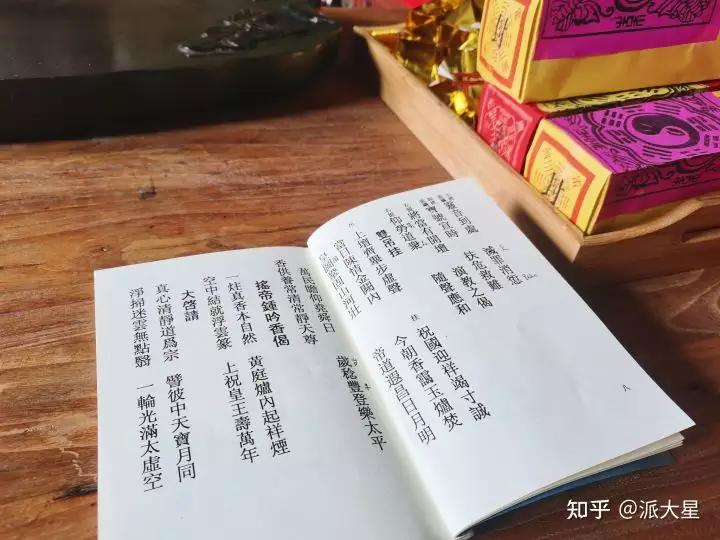 八
靈音到處 滅罪消愆
寶號宣時 扶危救難
將當有開壇 演教之偈
仰勞道衆 隨聲應和
雙吊挂
上壇齊舉步虛聲 祝國迎祥竭寸誠
當日陳情金闕內 今朝香靄玉爐焚
皇圖鞏固山河壯 帝道遐昌日月明
萬民瞻仰堯舜日 歲稔豐登樂太平
香供養常清常靜天尊
搖帝鍾吟香偈
一炷真香本自然 黃庭爐內起祥煙
空中結就浮雲篆 上祝皇王壽萬年
大啓請
真心清靜道爲宗 譬彼中天寶月同
淨掃迷雲無點翳 一輪光滿太虛空
知乎 @派大星